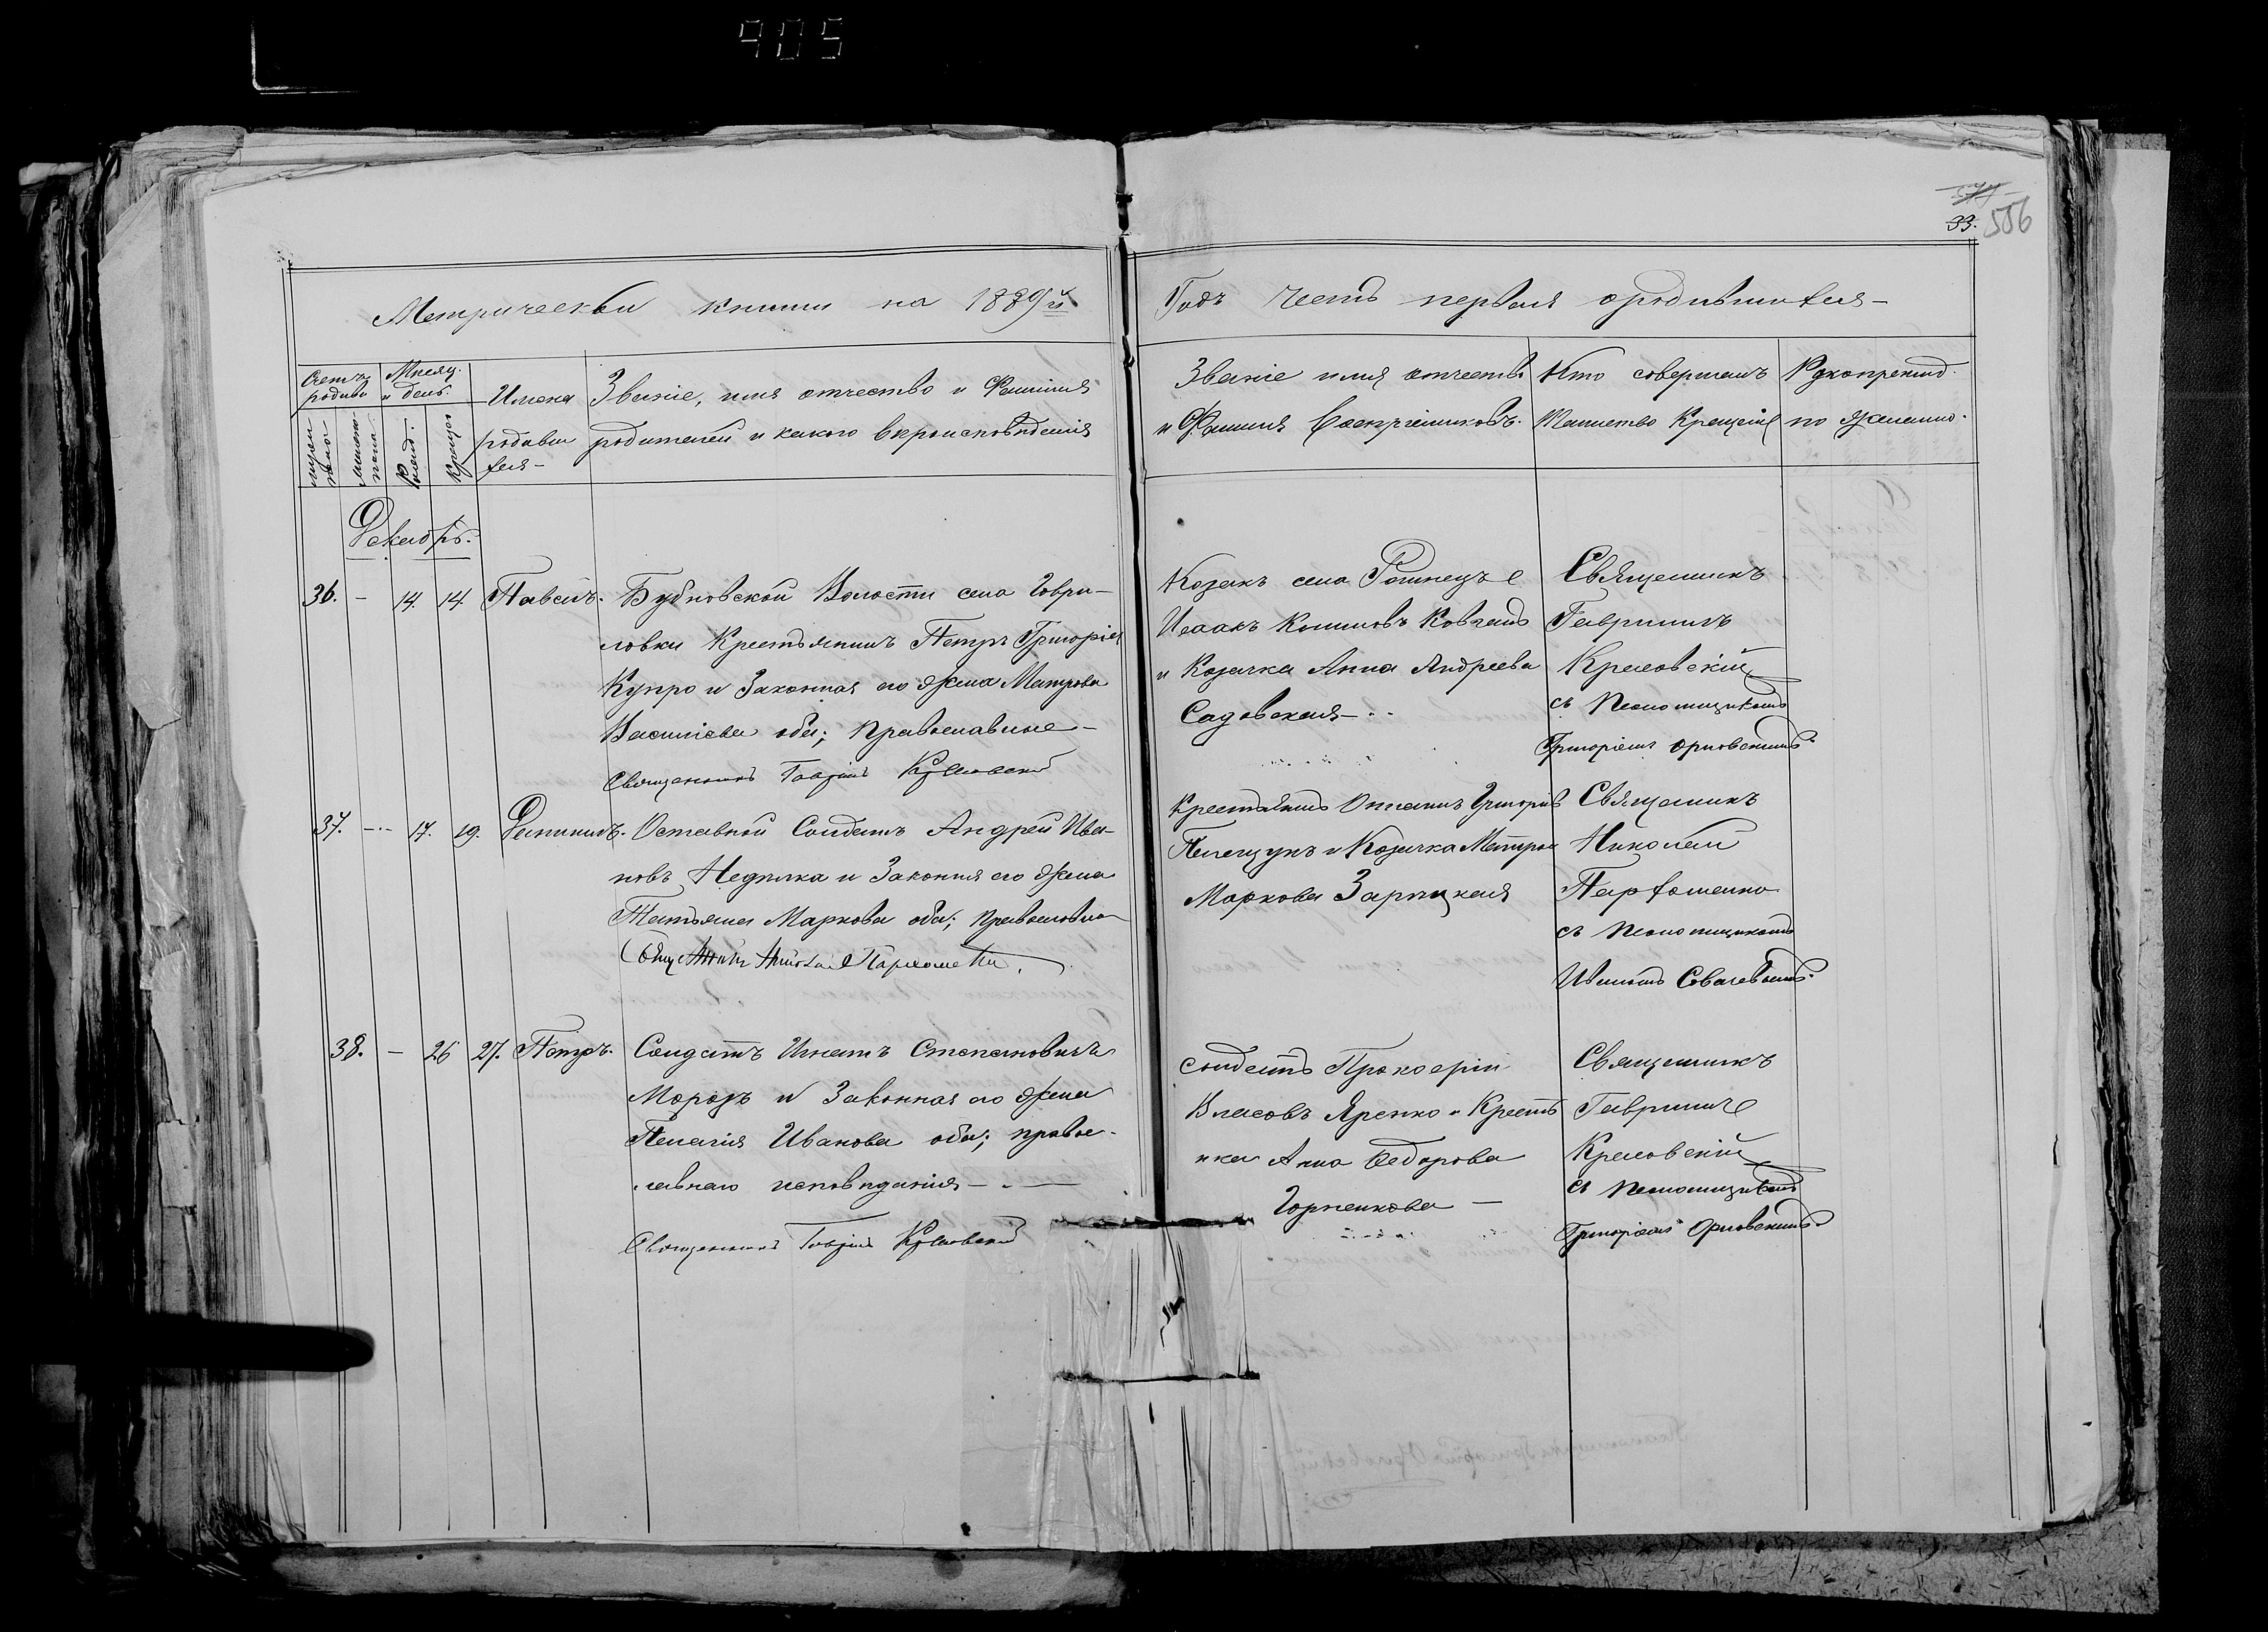 905
33. 556
Метрической книги на 1889й
Годъ Часть первая о родившихся—
Счетъ родив
Мѣсяц. и день.
Имена родивших
ся—
Званіе, имя отчество и Фамилія
родителей и какого вѣроисповѣданія
Званіе имя отчество
и Фамилія Воспріемниковъ.
Кто совершалъ
Таинство Крещенія
Рукоприклад.
по желанію.
мужеска пола
женска пола
Рожд.
Крещен
Декабрь.
36. — 14. 14. Павелъ.
Бубновской Волости села Гаври-
ловки Крестьянинъ Петръ Григоріев
Купро и Законная его жена Матрона
Василіева оба; православные—
Священникъ Гавріилъ Крыловскій
Козакъ села
Исаакъ Ковганъ
и Козачка Анна Андреева
Садовская—
Священникъ
Гавріилъ
Крыловскій
съ Псаломщикомъ
Григоріемъ Орловскимъ.
37. — 17. 19. Даніилъ.
Отставной Солдатъ Андрей Ива-
новъ Недѣлка и Законная его жена
Татьяна Маркова оба; православные
Священникъ Николай Пархоменко.
Крестьянинъ Григоріев
Пелещукъ и Козачка Матрона
Маркова Зарицкая
Священникъ
Николай
Парфоменко
съ Псаломщикомъ
Иваномъ
38. — 26 27. Петръ.
Солдатъ Игнатъ Степановичъ
Морозъ и Законная его жена
Пелагія Ивановa оба; право-
славнаго исповѣданія—
Священникъ Гавріилъ Крыловскій
солдатъ Прокофій
Власовъ Яренко и Кресть
нка Анна Федорова
Горпенкова—
Священникъ
Гавріилъ
Крыловскій
съ Псаломщикомъ
Григоріемъ Орловскимъ.